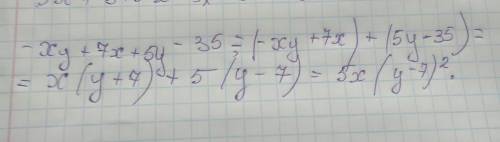 -xy+7x+5y-35=(-xy+7x)+(5y-35)=
=x(y+7)+5(y-7)=5x(y-7)².